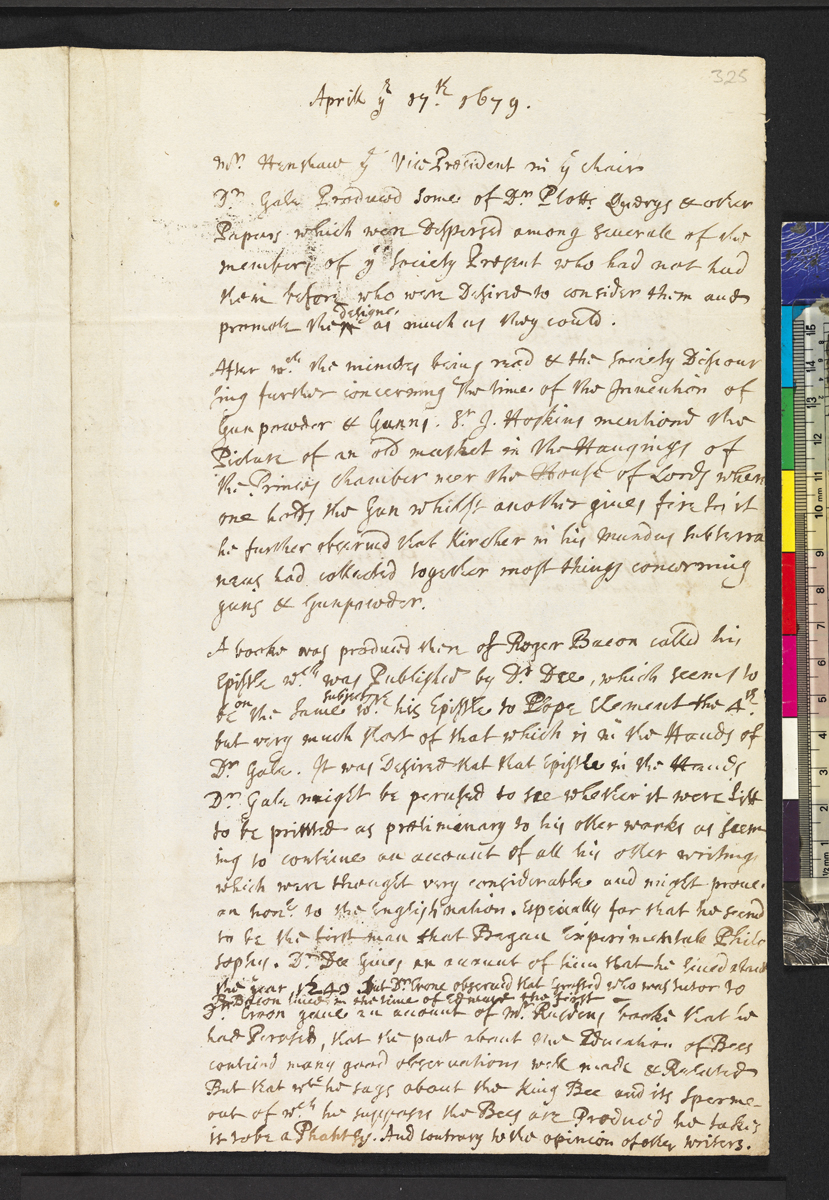 325
Aprill ye 17th. 1679.
Mr. Henshaw ye Vice President in ye chair
Dr. Gale Produced some of Dr. Plotts Querys & other
Papers which were Dispersed among severale of the
members of ye Society Present who had not had
them before who were Desired to consider them and
designe
promote the as much as they could.
After wch the minutes being read & the Society Discour
sing further concerning the time of the Invention of
Gunpowder & Gunns. Sr. J. Hoskins mentiond the
Picture of an old musket in the Hangings of
the Princes chamber neer the House of Lords where
one holds the Gun whilst another gives fire to it
he further observed that Kircher in his Mundus Subterra
neus had collected together most things concerning
guns & Gunpowder.
A booke was produced there of Roger Bacon called his
Epistle wch was Published by Dr. Dee, which seems to
on subject
be the same wth his Epistle to Pope Clement the 4th.
but very much short of that which is in the Hands of
Dr. Gale. It was Desired that that Epistle in the Hands
Dr. Gale might be perused to see whether it were fitt
to be printed as prelimenary to his other works as seem
ing to containe an account of all his other writings
which were thought very considerable and might prove
an honr. to the English nation. Especially for that he seemd
to be the first man that Began Experimentale Philo
sophy. Dr. Dee gives an account of him that he lived about
the year 1240 but Dr. Crone observed that who was tutor to
Bacon lived in the time of Edward the first
Dr. Croon gave an account of Mr. Rusdens booke that he
had Perused, that the part about the Education of Bees
containd many good observations well made & Related
But that wch he says about the King Bee and its Sperme
out of wch he supposes the Bees are Produced he takes
it to be a Phantsy. And contrary to the opinion of other writers.
15
14
13
12
11
10 mm
9
8
7
6
5
4
3
2
1
1/2 mm